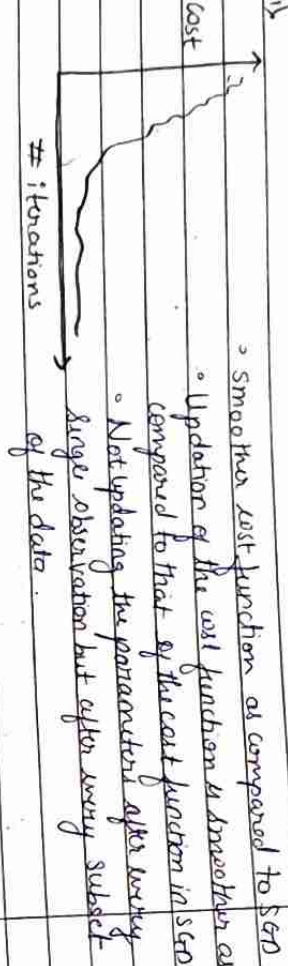 cost
# iterations
◦ Smoother cost function as compared to SGD
◦ Updation of the cost function is smoother as
compared to that of the cost function in SGD
◦ Not updating the parameters after every
single observation but after every subset
of the data.